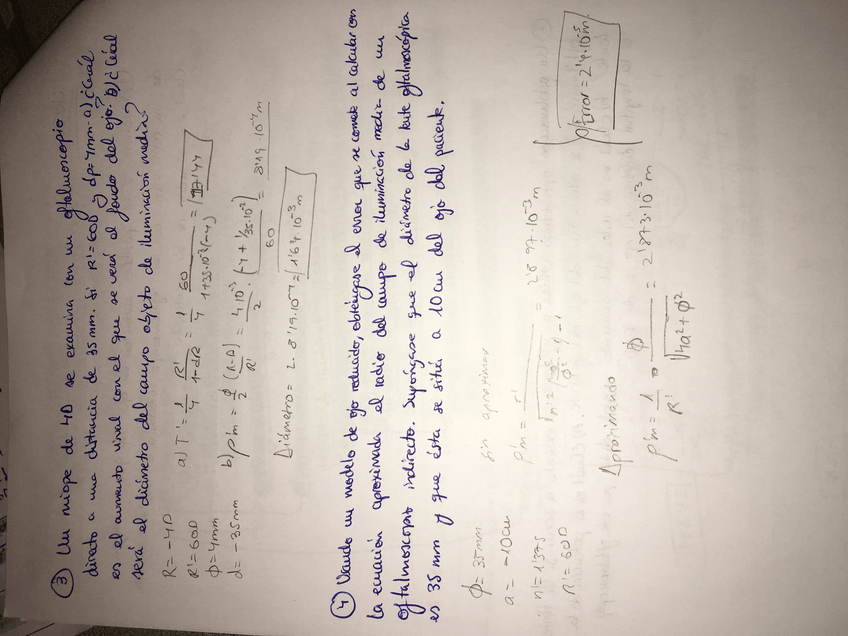 ③ Un miope de 4D se examina con un oftalmoscopio
directo a una distancia de 35mm. Si R'=60D y dp=4mm. a) ¿Cuál
es el aumento visual con el que se verá el fondo del ojo? b) ¿Cuál
será el diámetro del campo objeto de iluminación media?
R = -4D
R'= 60D
ϕ = 4mm
d = -35mm
a) T' = 1/4 R'/(1-dR) = 1/4 60/(1+35·10⁻³(-4)) = 17'44
b) ρ'm = ϕ/2 (R-A)/R' = 4·10⁻³/2 · (-4+1/35·10⁻³)/60 = 8'19·10⁻⁴m
Diámetro = 2·8'19·10⁻⁴ = 1'64·10⁻³m
④ Usando un modelo de ojo reducido, obténgase el error que se comete al calcular con
la ecuación aproximada el radio del campo de iluminación media de un
oftalmoscopio indirecto. Supóngase que el diámetro de la lente oftalmoscópica
es 35mm y que ésta se sitúa a 10cm del ojo del paciente.
ϕ = 35mm
a = -10cm
n' = 1'375
R' = 60D
Sin aproximar
= 2'897·10⁻³m
Aproximando
ρ'm = 1/R' · ϕ/√(4a²+ϕ²) = 2'873·10⁻³m
Error = 2'4·10⁻⁵m.